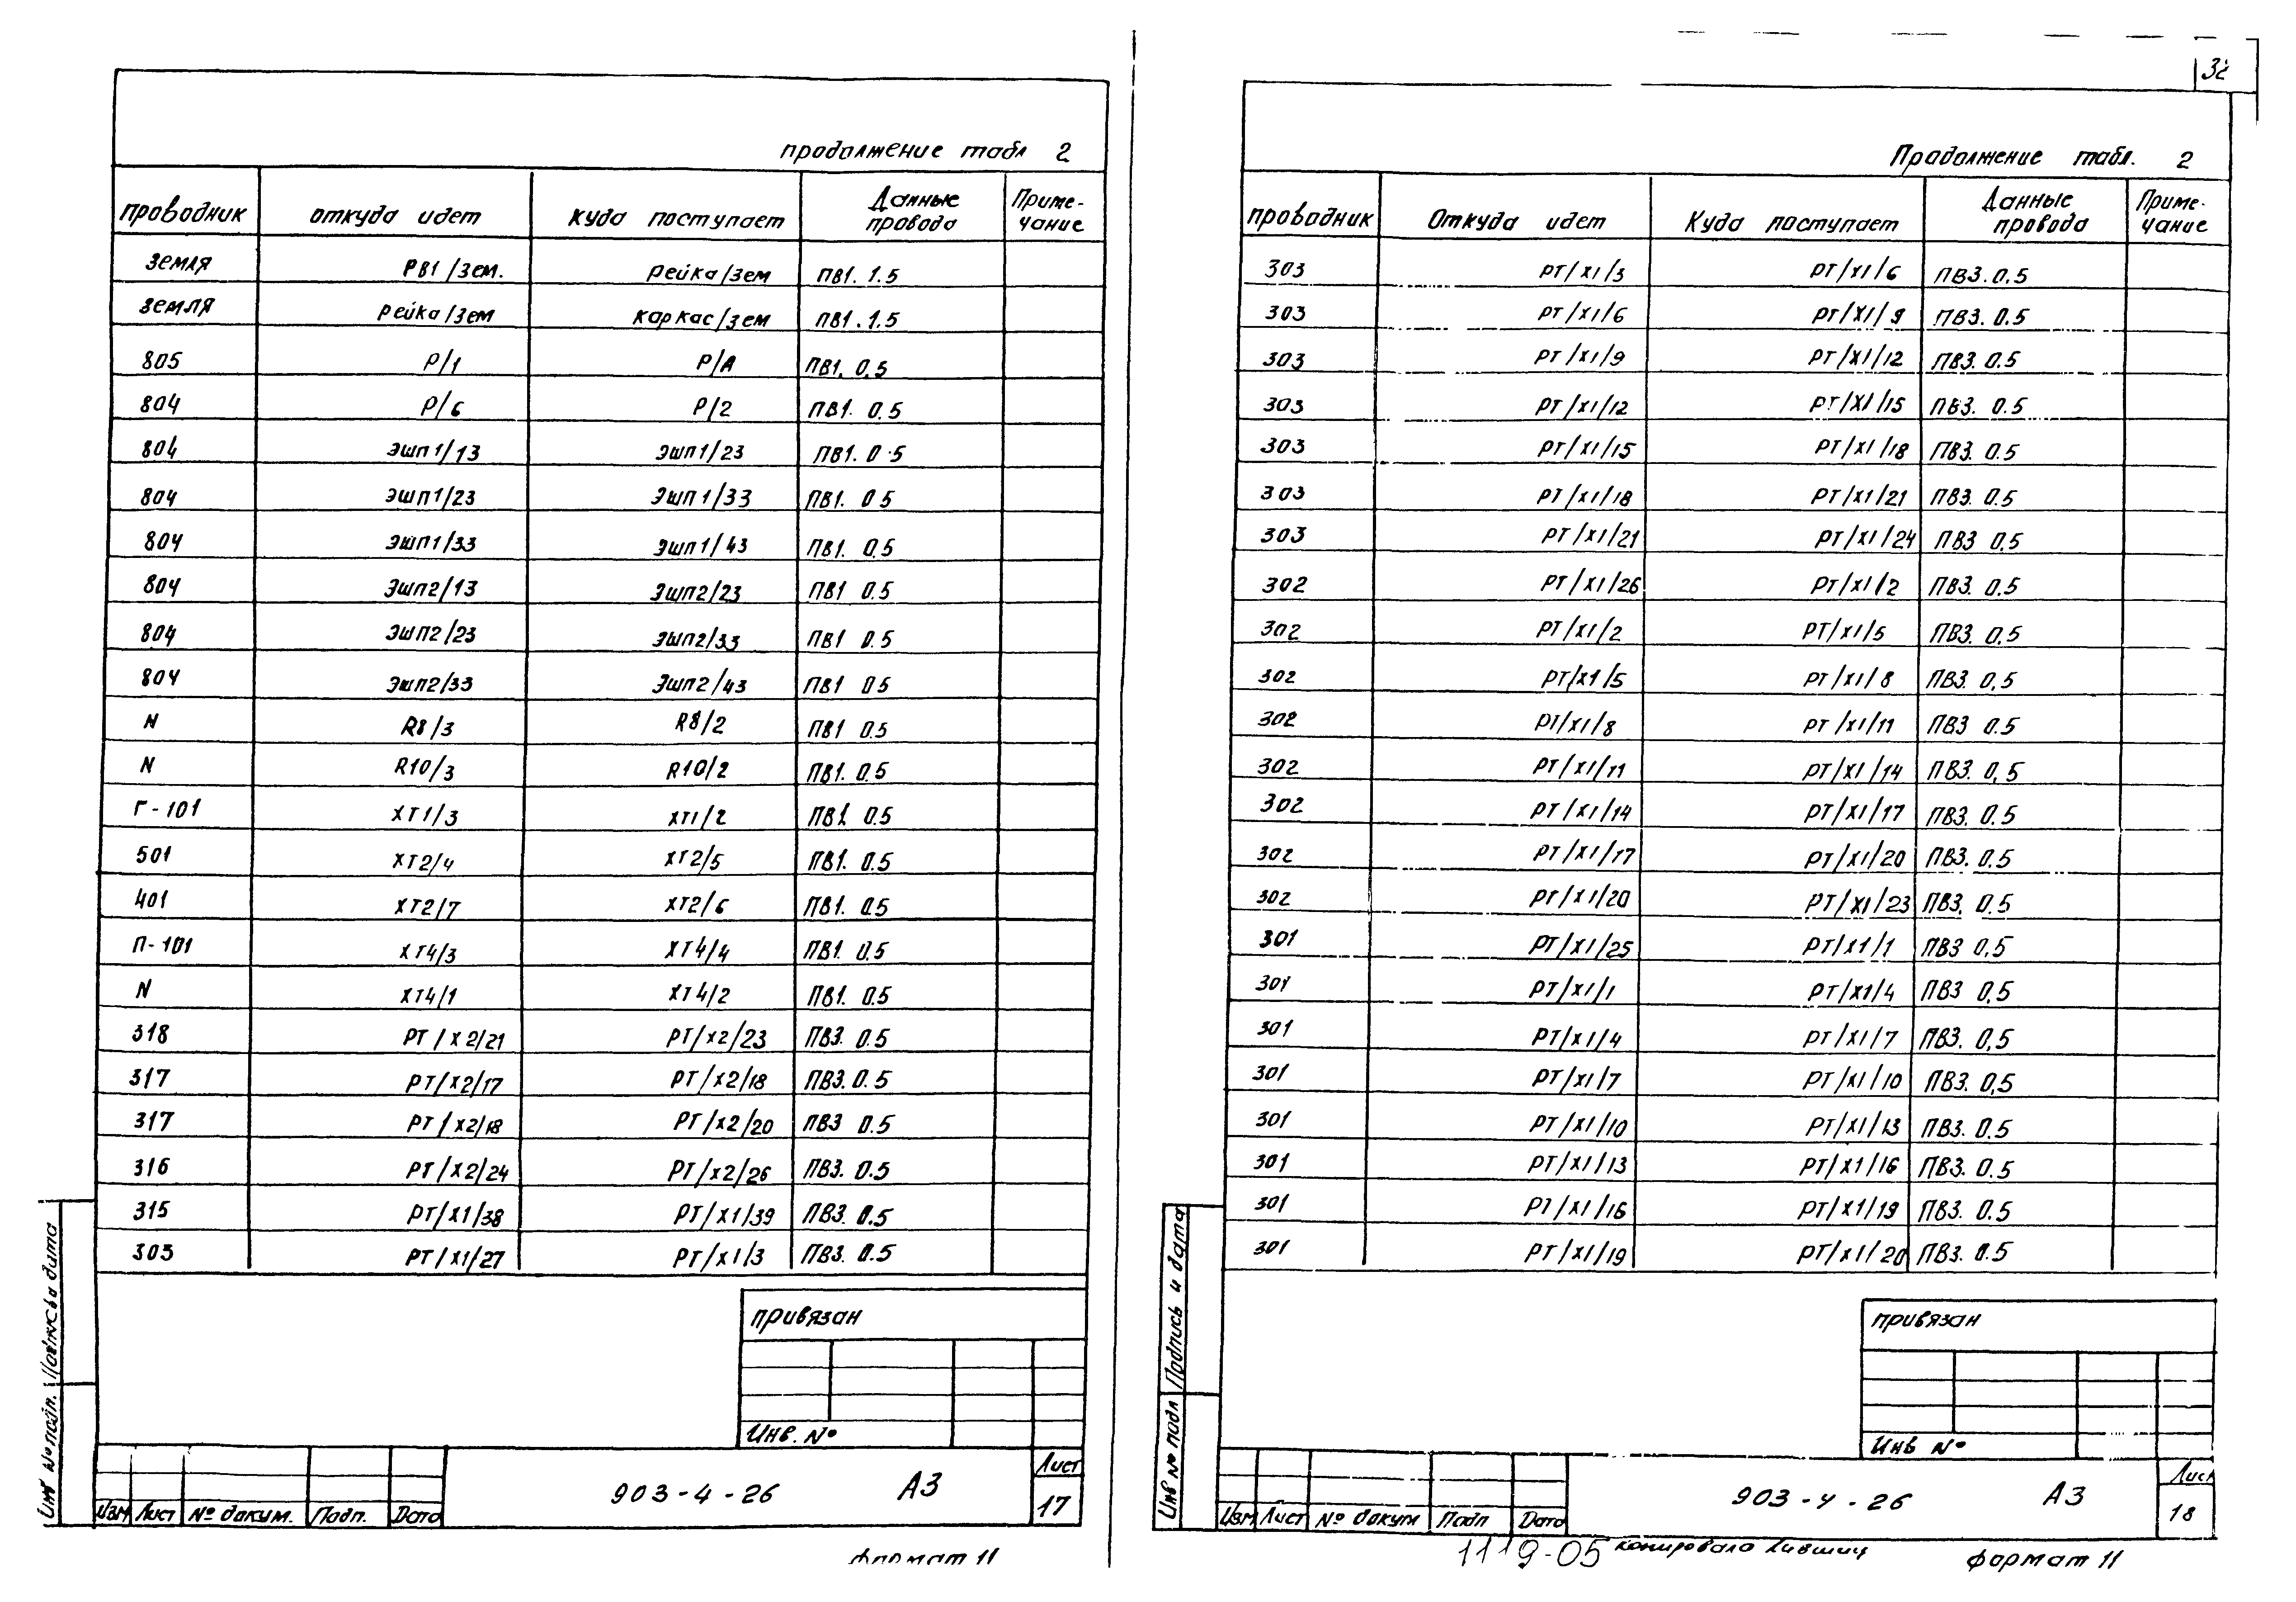 32
продолжение табл 2
проводник откуда идет куда поступает Данные провода Приме-чание
земля РВ1/зем. рейка/зем ПВ1. 1.5
земля рейка/зем каркас/зем ПВ1. 1.5
805 Р/1 Р/А ПВ1. 0.5
804 Р/6 Р/2 ПВ1. 0.5
804 ЭШП1/13 ЭШП1/23 ПВ1. 0.5
804 ЭШП1/23 ЭШП1/33 ПВ1. 0.5
804 ЭШП1/33 ЭШП1/43 ПВ1. 0.5
804 ЭШП2/13 ЭШП2/23 ПВ1 0.5
804 ЭШП2/23 ЭШП2/33 ПВ1 0.5
804 ЭШП2/33 ЭШП2/43 ПВ1 0.5
N R8/3 R8/2 ПВ1 0.5
N R10/3 R10/2 ПВ1. 0.5
Г-101 ХТ1/3 ХТ1/2 ПВ1. 0.5
501 ХТ2/4 ХТ2/5 ПВ1. 0.5
401 ХТ2/7 ХТ2/6 ПВ1. 0.5
П-101 ХТ4/3 ХТ4/4 ПВ1. 0.5
N ХТ4/1 ХТ4/2 ПВ1. 0.5
318 РТ/Х2/21 РТ/Х2/23 ПВ3. 0.5
317 РТ/Х2/17 РТ/Х2/18 ПВ3. 0.5
317 РТ/Х2/18 РТ/Х2/20 ПВ3 0.5
316 РТ/Х2/24 РТ/Х2/26 ПВ3. 0.5
315 РТ/Х1/38 РТ/Х1/39 ПВ3. 0.5
303 РТ/Х1/27 РТ/Х1/3 ПВ3. 0.5
привязан
Инв. №
Изм Лист № докум. Подп. Дата
903-4-26 А3
Лист
17
Инв № подп. Подпись и дата
формат 11
Продолжение табл. 2
проводник Откуда идет Куда поступает Данные провода Приме-чание
303 РТ/Х1/3 РТ/Х1/6 ПВ3. 0.5
303 РТ/Х1/6 РТ/Х1/9 ПВ3. 0.5
303 РТ/Х1/9 РТ/Х1/12 ПВ3. 0.5
303 РТ/Х1/12 РТ/Х1/15 ПВ3. 0.5
303 РТ/Х1/15 РТ/Х1/18 ПВ3. 0.5
303 РТ/Х1/18 РТ/Х1/21 ПВ3. 0.5
303 РТ/Х1/21 РТ/Х1/24 ПВ3 0.5
302 РТ/Х1/26 РТ/Х1/2 ПВ3. 0.5
302 РТ/Х1/2 РТ/Х1/5 ПВ3. 0.5
302 РТ/Х1/5 РТ/Х1/8 ПВ3. 0,5
302 РТ/Х1/8 РТ/Х1/11 ПВ3 0.5
302 РТ/Х1/11 РТ/Х1/14 ПВ3. 0,5
302 РТ/Х1/14 РТ/Х1/17 ПВ3. 0.5
302 РТ/Х1/17 РТ/Х1/20 ПВ3. 0.5
302 РТ/Х1/20 РТ/Х1/23 ПВ3. 0.5
301 РТ/Х1/25 РТ/Х1/1 ПВ3 0,5
301 РТ/Х1/1 РТ/Х1/4 ПВ3 0,5
301 РТ/Х1/4 РТ/Х1/7 ПВ3. 0,5
301 РТ/Х1/7 РТ/Х1/10 ПВ3. 0,5
301 РТ/Х1/10 РТ/Х1/13 ПВ3. 0.5
301 РТ/Х1/13 РТ/Х1/16 ПВ3. 0.5
301 РТ/Х1/16 РТ/Х1/19 ПВ3. 0.5
301 РТ/Х1/19 РТ/Х1/20 ПВ3. 0.5
привязан
Инв №
Изм Лист № докум Подп Дата
903-4-26 А3
Лист
18
Инв № подл Подпись и дата
1119-05 копировала
формат 11